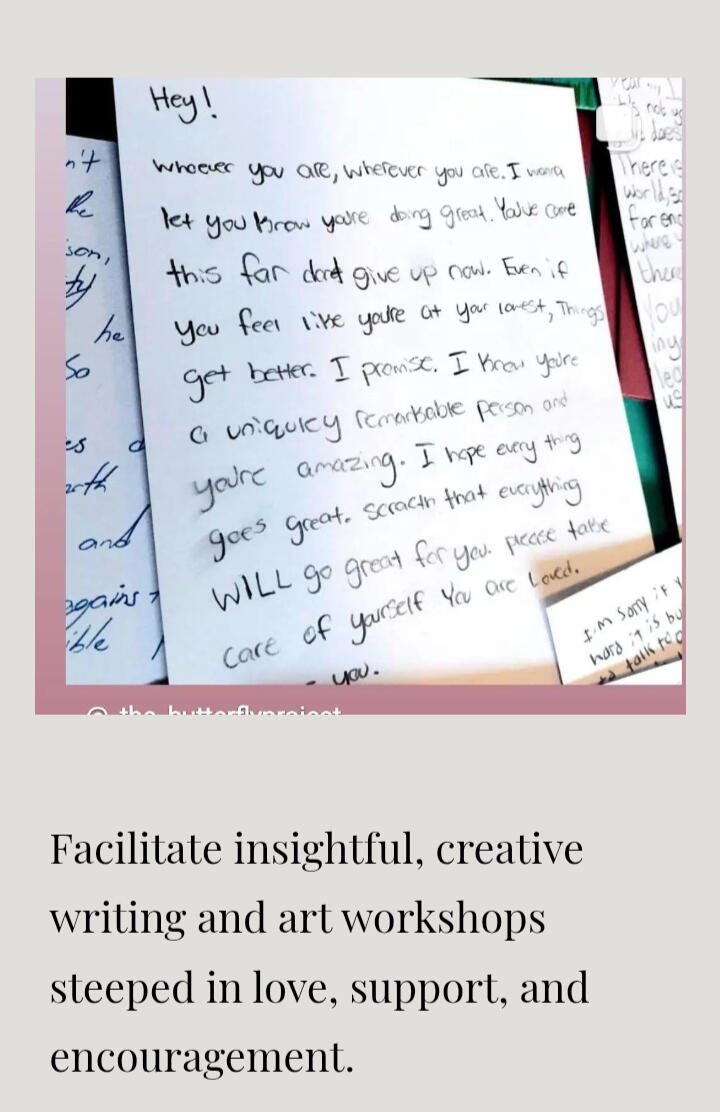 Hey!
whoever you are, wherever you are. I wanna
let you know you're doing great. You've come
this far don't give up now. Even if
you feel like you're at your lowest, Things
get better. I promise. I know you're
a uniquley remarkable person and
you're amazing. I hope every thing
goes great. scracth that everything
WILL go great for you. please take
care of yourself You are Loved.
- you.
n't
he
so
es a
and
agains
ible
it's not
does
There is
world, so
where
there
You
us
I'm sorry if
hard it is bu
to talk to
@ the_butterflyproject
Facilitate insightful, creative
writing and art workshops
steeped in love, support, and
encouragement.